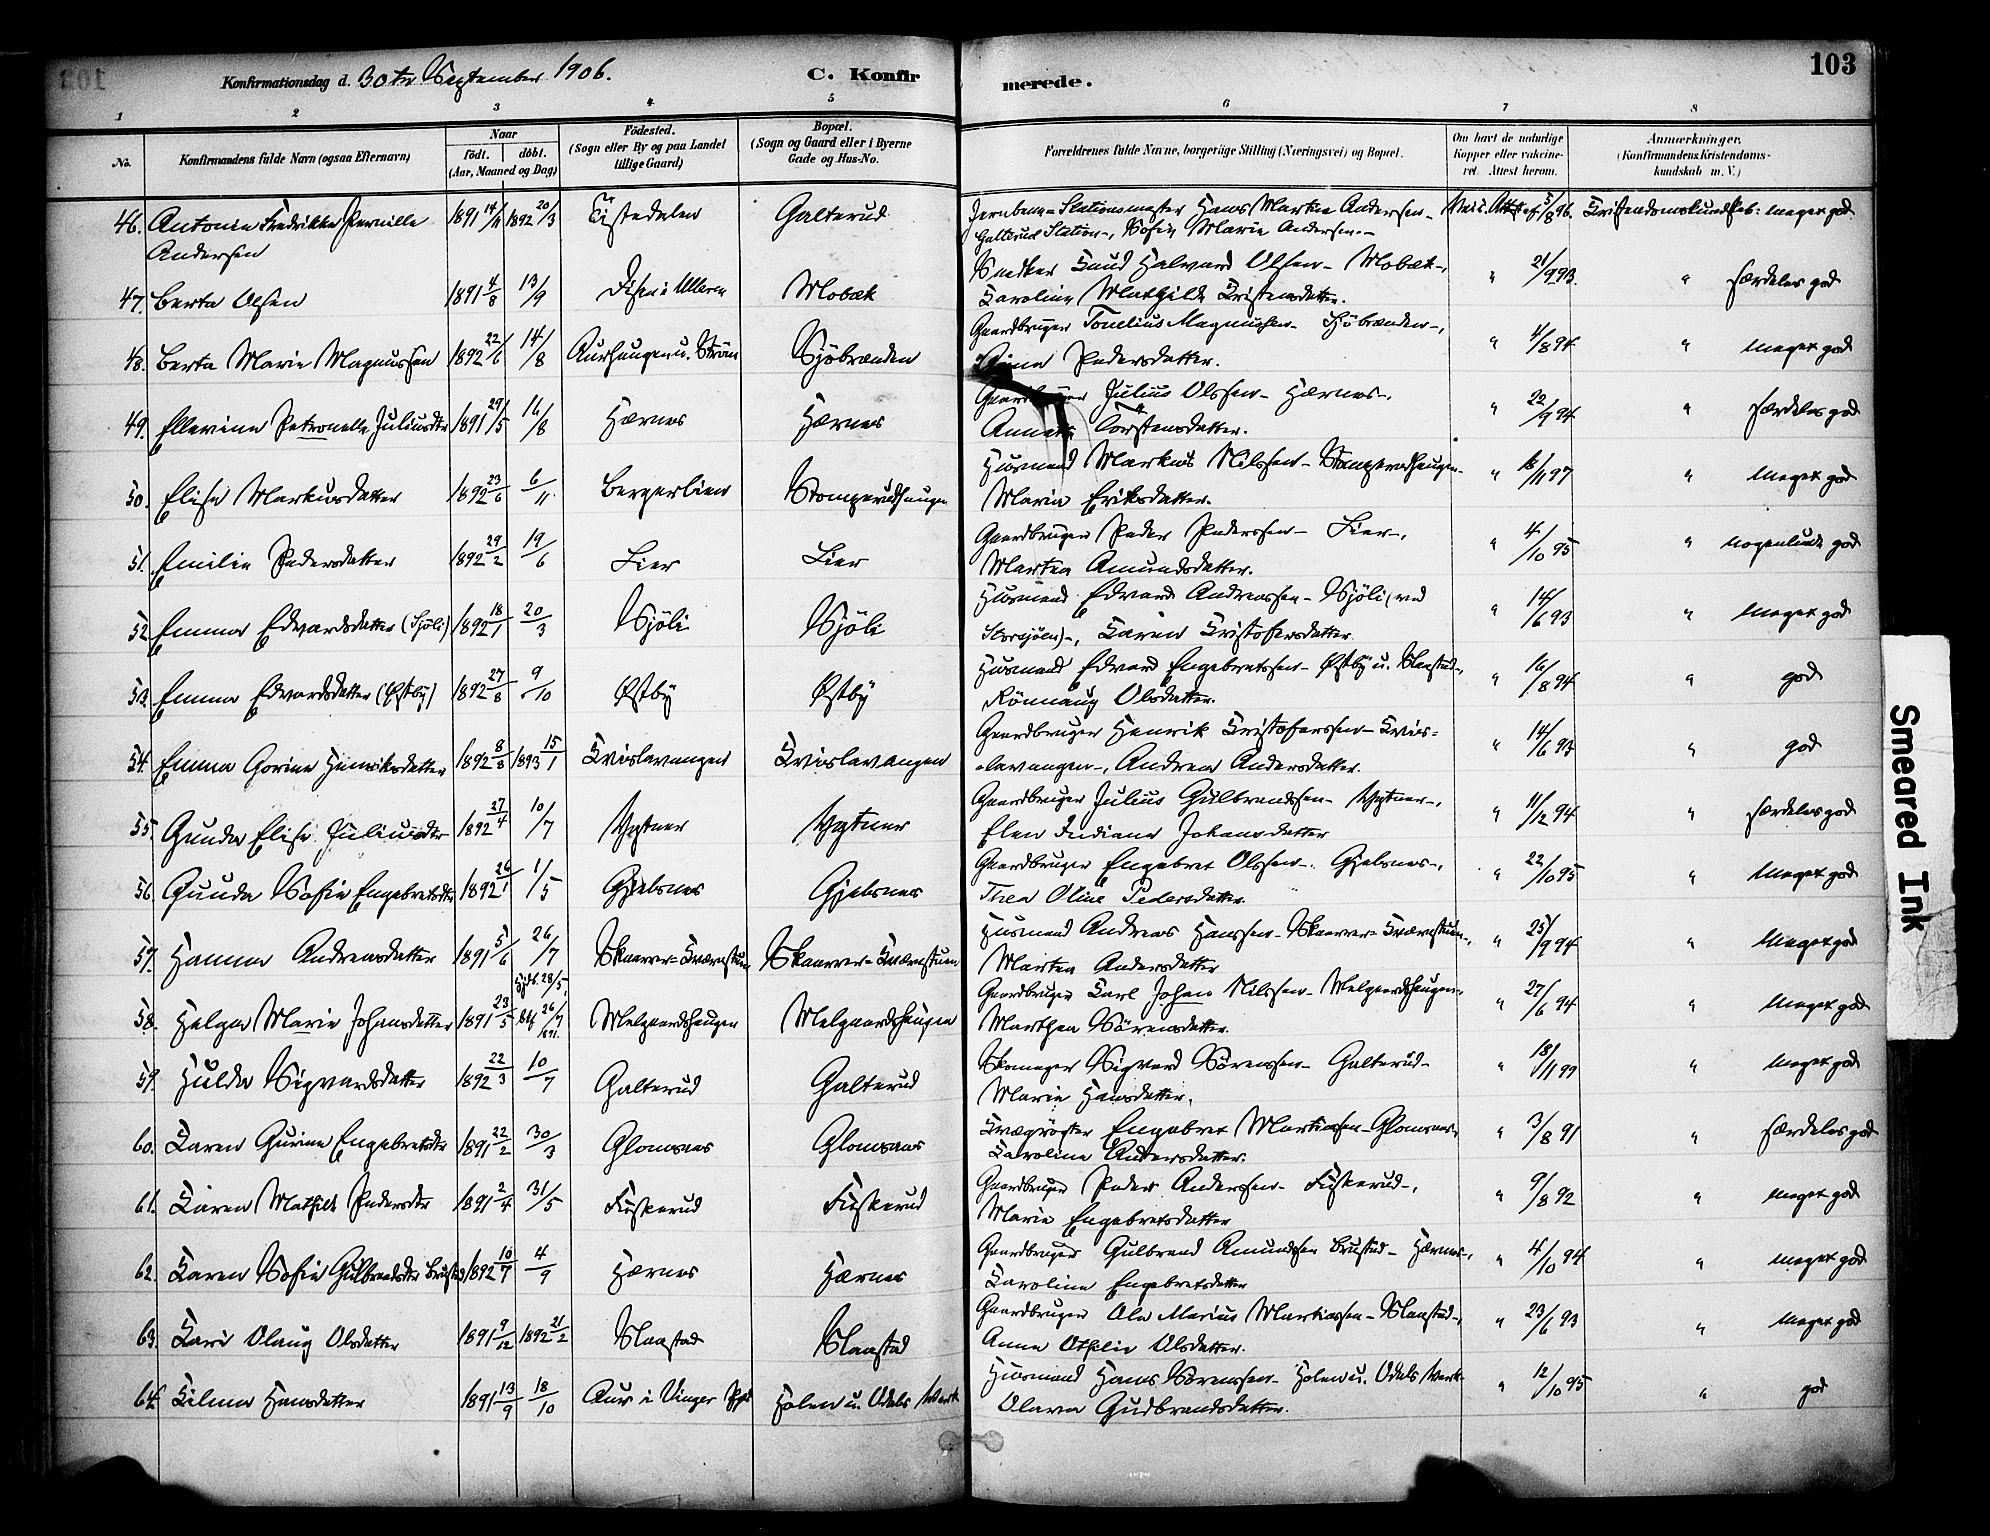 103
Konfirmationsdag d. 30te September 1906.
C. Konfir
merede.
1 2 3 4 5 6 7 8
No.
Konfirmandens fulde Navn (ogsaa Efternavn)
Naar
født. døbt.
(Aar, Maaned og Dag)
Fødested.
(Sogn eller By og paa Landet
tillige Gaard)
Bopæl.
(Sogn og Gaard eller i Byerne
Gade og Hus-No.
Forældrenes fulde Navne, borgerlige Stilling (Næringsvei) og Bopæl.
Om havt de naturlige
Kopper eller vakcine-
ret. Attest herom.
Anmerkninger,
(Konfirmandens Kristendoms-
kundskab m. V.)
46. Antonie Fredrikke Pernille Andersen 1891 14/11 1892 20/3 Tistedalen Galterud Jernbane-Stationsmester Hans Martin Andersen- Galterud Station-, Sofie Marie Andersen.- Vacc. Attst af 5/8 96. Kristendomskundskab: meget god
47. Berta Olsen 1891 4/8 13/9 Disen i Ulleren Mobæk Snedker Knud Halvard Olsen- Mobæk-, Karoline Mathilde Kristensdatter. " 21/9 93. " særdeles god
48. Berta Marie Magnussen 1892 22/6 14/8 Aurhaugen u. Strøm Sjöbrænden Gaardbruger Tonelius Magnussen- Sjöbrænden-, Anne Pedersdatter. " 4/8 94 " meget god
49. Ellevine Petronelle Juliusdtr 1891 29/5 16/8 Hærnes Hærnes Gaardbruger Julius Olssen- Hærnes-, Annette Torstensdatter. " 22/9 94 " særdeles god
50. Elise Markusdatter 1892 23/6 6/11 Bergerlien Stomperudhaugen Husmand Markus Nilssen- Stomperudhaugen- Maria Eriksdatter. " 18/11 97 " meget god
51. Emilie Pedersdatter 1892 29/2 19/6 Lier Lier Gaardbruger Peder Pederssen- Lier-, Marten Amundsdatter. " 4/10 95 " nogenlunde god
52 Emma Edvardsdatter (Sjöli) 1892 18/1 20/3 Sjöli Sjöli Husmand Edvard Andreassen- Sjöli (ved Storsjöen)-, Karen Kristofersdatter. " 14/6 93 " meget god
53. Emma Edvardsdatter (Østby) 1892 27/8 9/10 Østby Østby Husmand Edvard Engebretssen- Østby u. Slaastad-, Rönnaug Olsdatter. " 16/8 94 " god
54. Emma Gorine Henriksdatter 1892 8/8 1893 15/1 Kvislevangen Kvislevangen Gaardbruger Henrik Kristoferssen- Kvis= levangen-, Andrea Andersdatter. " 14/6 93 " god
55. Gunda Elise Juliusdtr 1892 27/4 10/7 Vegtner Vegtner Gaardbruger Julius Gulbrandssen- Vegtner-, Elen Indiane Johansdatter " 11/12 94 " særdeles god
56. Gunda Sofie Engebretsdtr 1892 26/1 1/5 Gjelsnes Gjelsnes Gaardbruger Engebret Olssen- Gjelsnes-, Thea Oline Pedersdatter. " 22/10 95 " meget god
57. Hanna Andreasdatter 1891 5/6 26/7 Skaarer=Kværnstuen Skaarer=Kværnstuen Husmand Andreas Hanssen- Skaarer=Kværnstuen-, Marten Andersdatter " 25/9 94 " meget god
58. Helga Marie Johansdatter 1891 23/5 Hjdbt. 28/5 26/7 1891. Melgaardshaugen Melgaardshaugen Gaardbruger Carl Johan Nilssen- Melgaardshaugen-, Marthea Sörensdatter. " 27/6 94 " meget god
59. Hulda Sigvardsdatter 1892 22/3 10/7 Galterud Galterud Skomager Sigvard Sörenssen- Galterud- Marie Hansdatter. " 18/11 99 " meget god
60. Karen Gurine Engebretsdtr 1891 22/2 30/3 Glomsaas Glomsaas Kvægrögter Engebret Martinssen- Glomsaas-, Karoline Andersdatter. " 3/8 91 " særdeles god
61. Karen Mathilde Pedersdtr 1891 2/4 31/5 Fuskerud Fuskerud Gaardbruger Peder Anderssen- Fuskerud-, Marie Engebretsdatter " 9/8 92 " meget god
62. Karen Sofie Gulbrandsdtr Brustad 1892 10/7 4/9 Hærnes Hærnes Gaardbruger Gulbrand Amundsen Brustad- Hærnes-, Karoline Engebretsdatter " 4/10 94 " meget god
63. Kari Olaug Olsdatter 1891 9/12 1892 21/2 Slaastad Slaastad Gaardbruger Ole Marius Martinssen- Slaastad-, Anne Othelie Olsdatter. " 23/6 93 " meget god
64. Kilma Hansdatter 1891 13/9 18/10 Aur i Vinger Pgd Holen u. Odals Verk Husmand Hans Sörenssen- Holen u. Odals Verk- Olava Gudbrandsdatter. " 12/10 95 " god
Smeared Ink